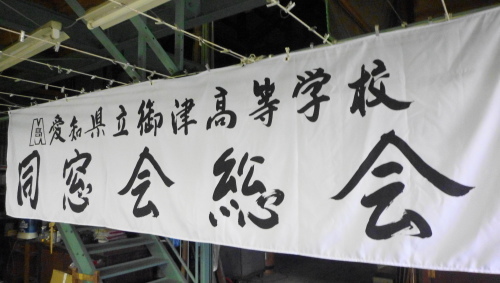 愛知県立御津高等学校
同窓会総会